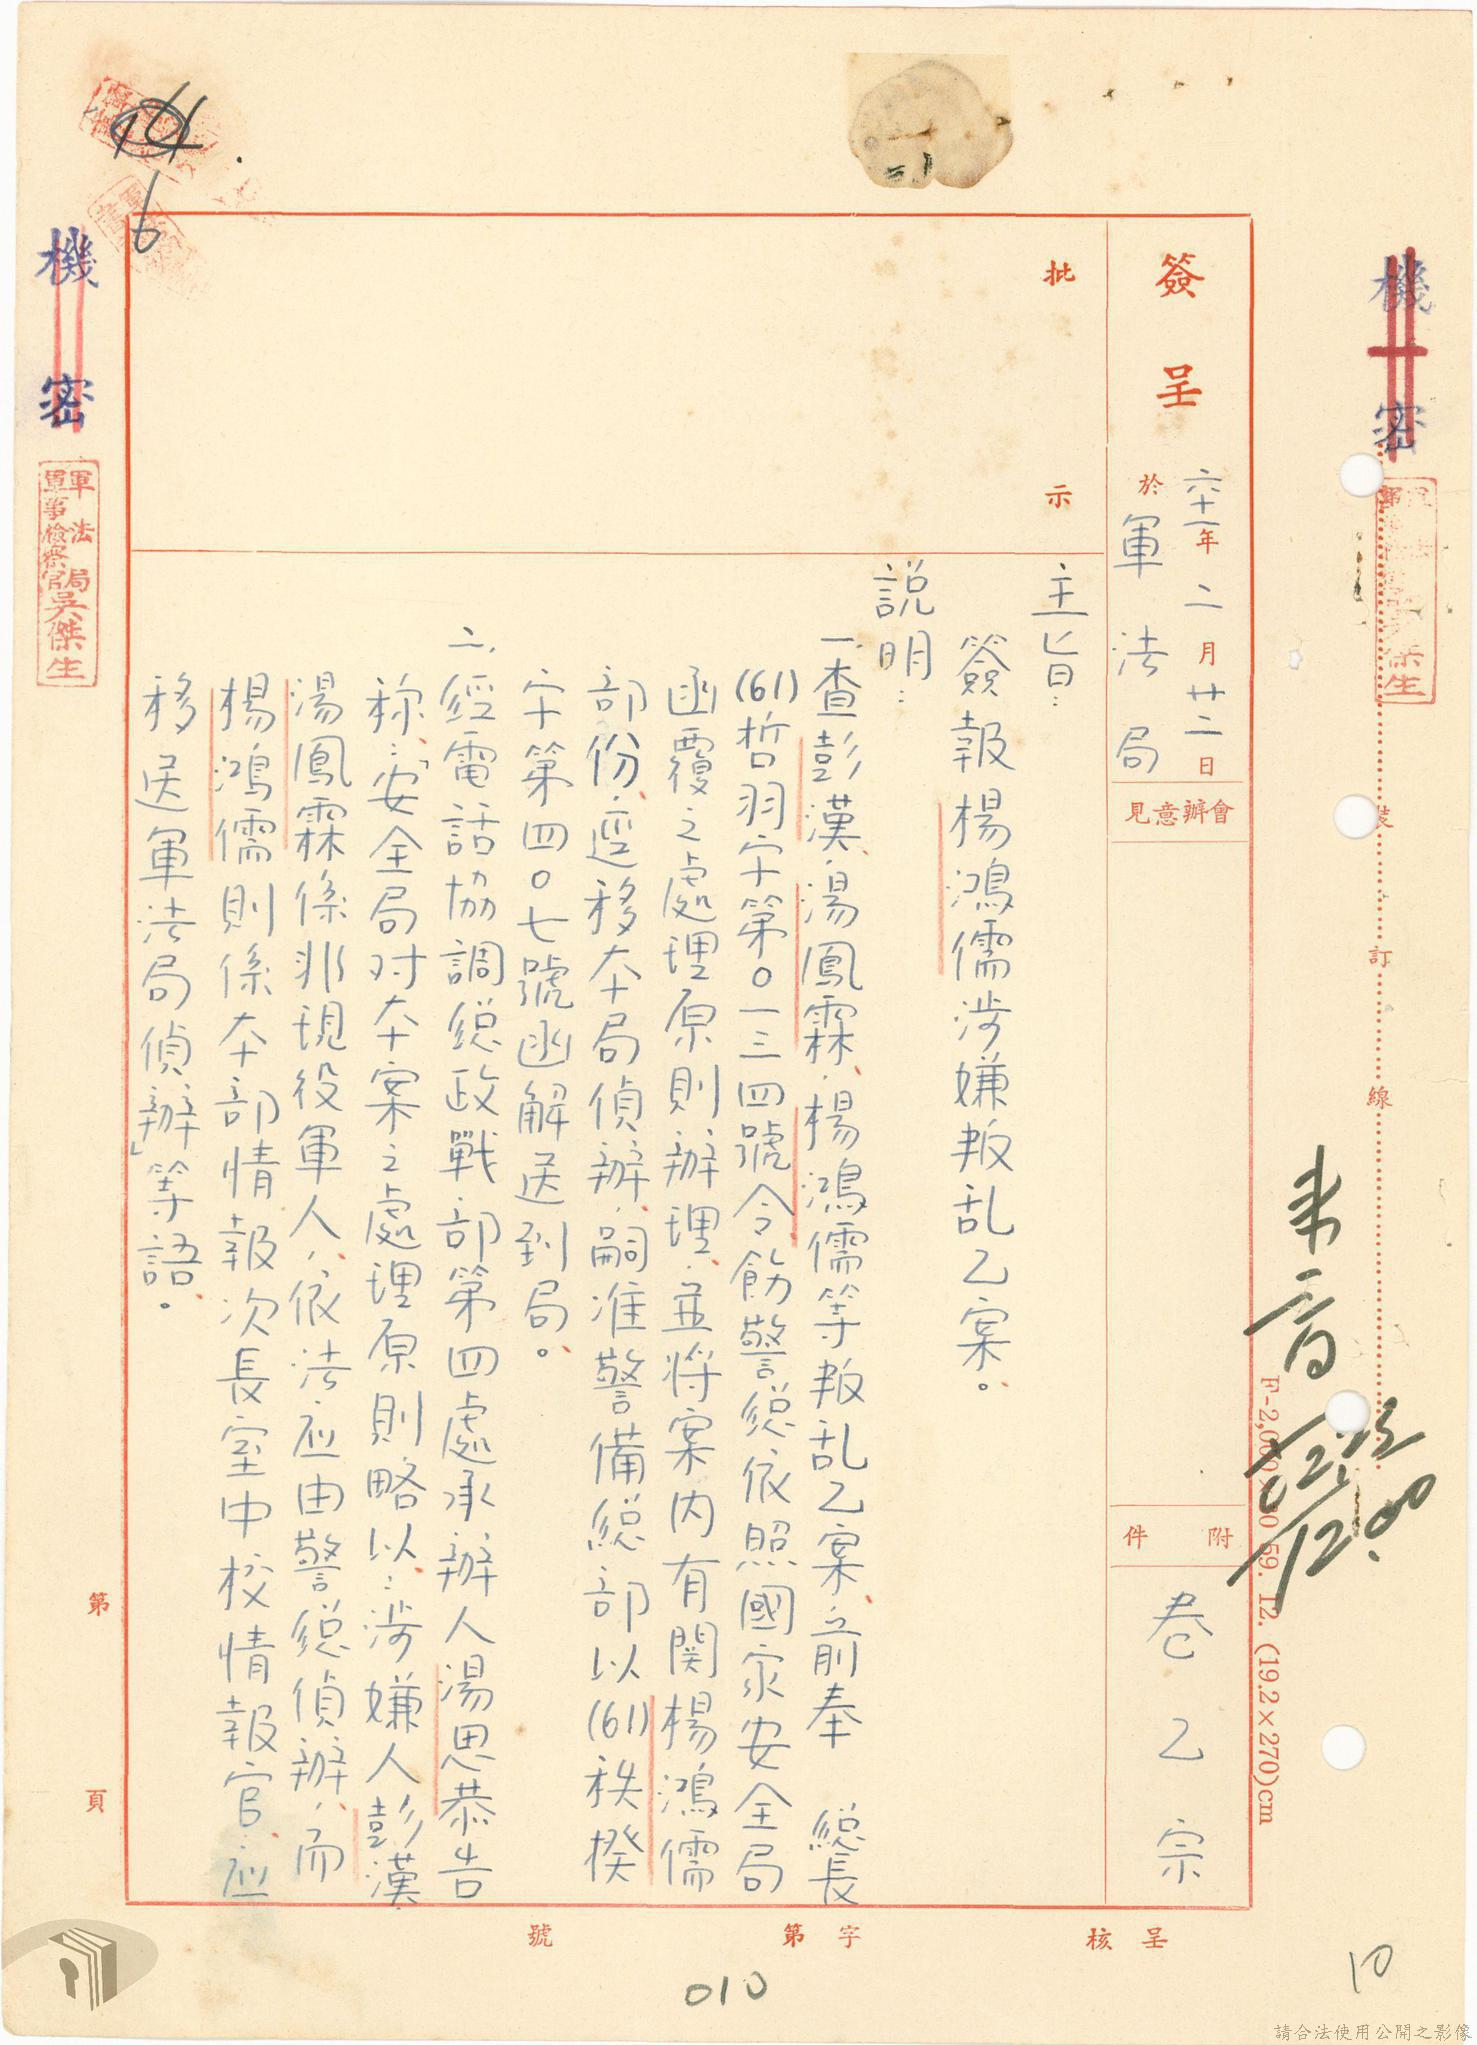 機密
軍法局
軍事檢察官吳傑生
機密
簽呈
六十一年二月廿二日
於軍法局
會辦意見
附件
卷乙宗
批示
主旨:
簽報楊鴻儒涉嫌叛乱乙案。
說明:
一、查彭漢、湯鳳霖、楊鴻儒等叛乱乙案,前奉 總長
(61)哲羽字第0一三四號令飭警總依照國家安全局
函覆之處理原則辦理,並將案內有関楊鴻儒
部份,逕移本局偵辦,嗣准警備總部以(61)秩揆
字第四0七號函解送到局。
二、經電話協調總政戰部第四處承辦人湯思恭告
稱:「安全局对本案之處理原則略以:涉嫌人彭漢
湯鳳霖係非現役軍人,依法应由警總偵辦,而
楊鴻儒則係本部情報次長室中校情報官,应
移送軍法局偵辦」等語。
裝訂線
F-2,000×100 59. 12. (19.2×270)cm
12.00
第頁
呈核
字第號
6
010
10
請合法使用公開之影像